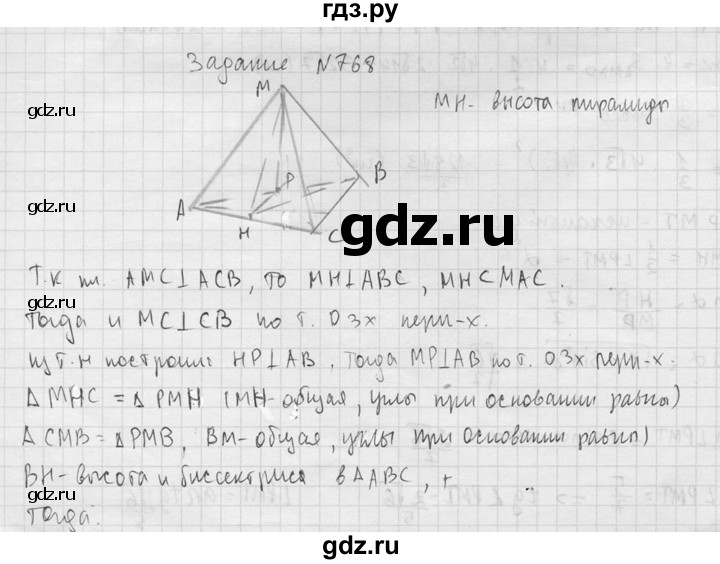 гдз.ру
Задание N768
M
MH - высота пирамиды
gdz.ru
gdz.ru
B
P
A
H
C
gdz.ru
gdz.ru
Т.к пл. AMC⊥ACB, то MH⊥ABC, MH⊂MAC.
Тогда и MC⊥CB по т. О 3х перп-х.
из т.H построим HP⊥AB, Тогда MP⊥AB по т. О 3х перп-х.
Δ MHC = Δ PMH (MH-общая, углы при основании равны)
Δ CMB = Δ PMB, BM-общая, углы при основании равны)
BH - высота и биссектриса в ΔABC,
Тогда:
gdz.ru
gdz.ru
gdz.ru